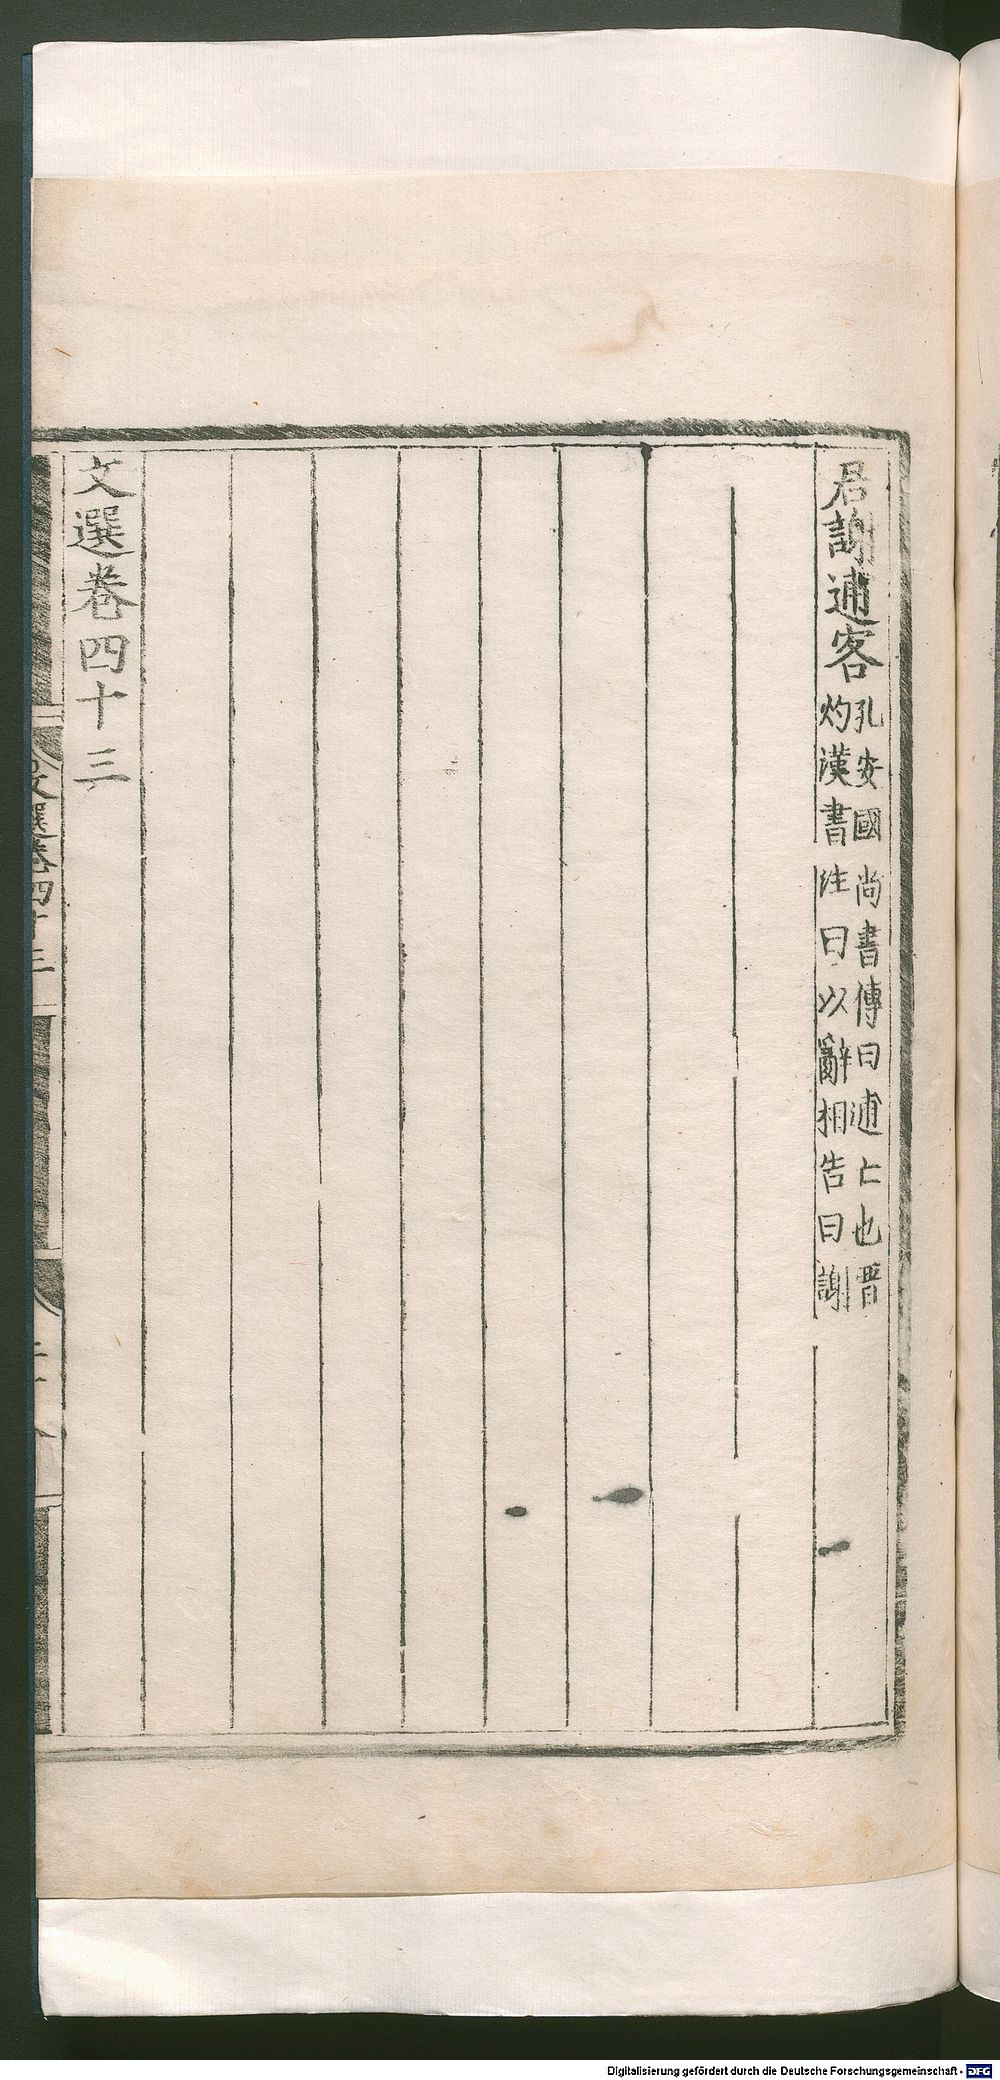 君謝逋客孔安國尚書傳曰逋亡也晋
灼漢書注曰以辭相告曰謝
文選卷四十三
文選卷四十三
Digitalisierung gefördert durch die Deutsche Forschungsgemeinschaft - DFG